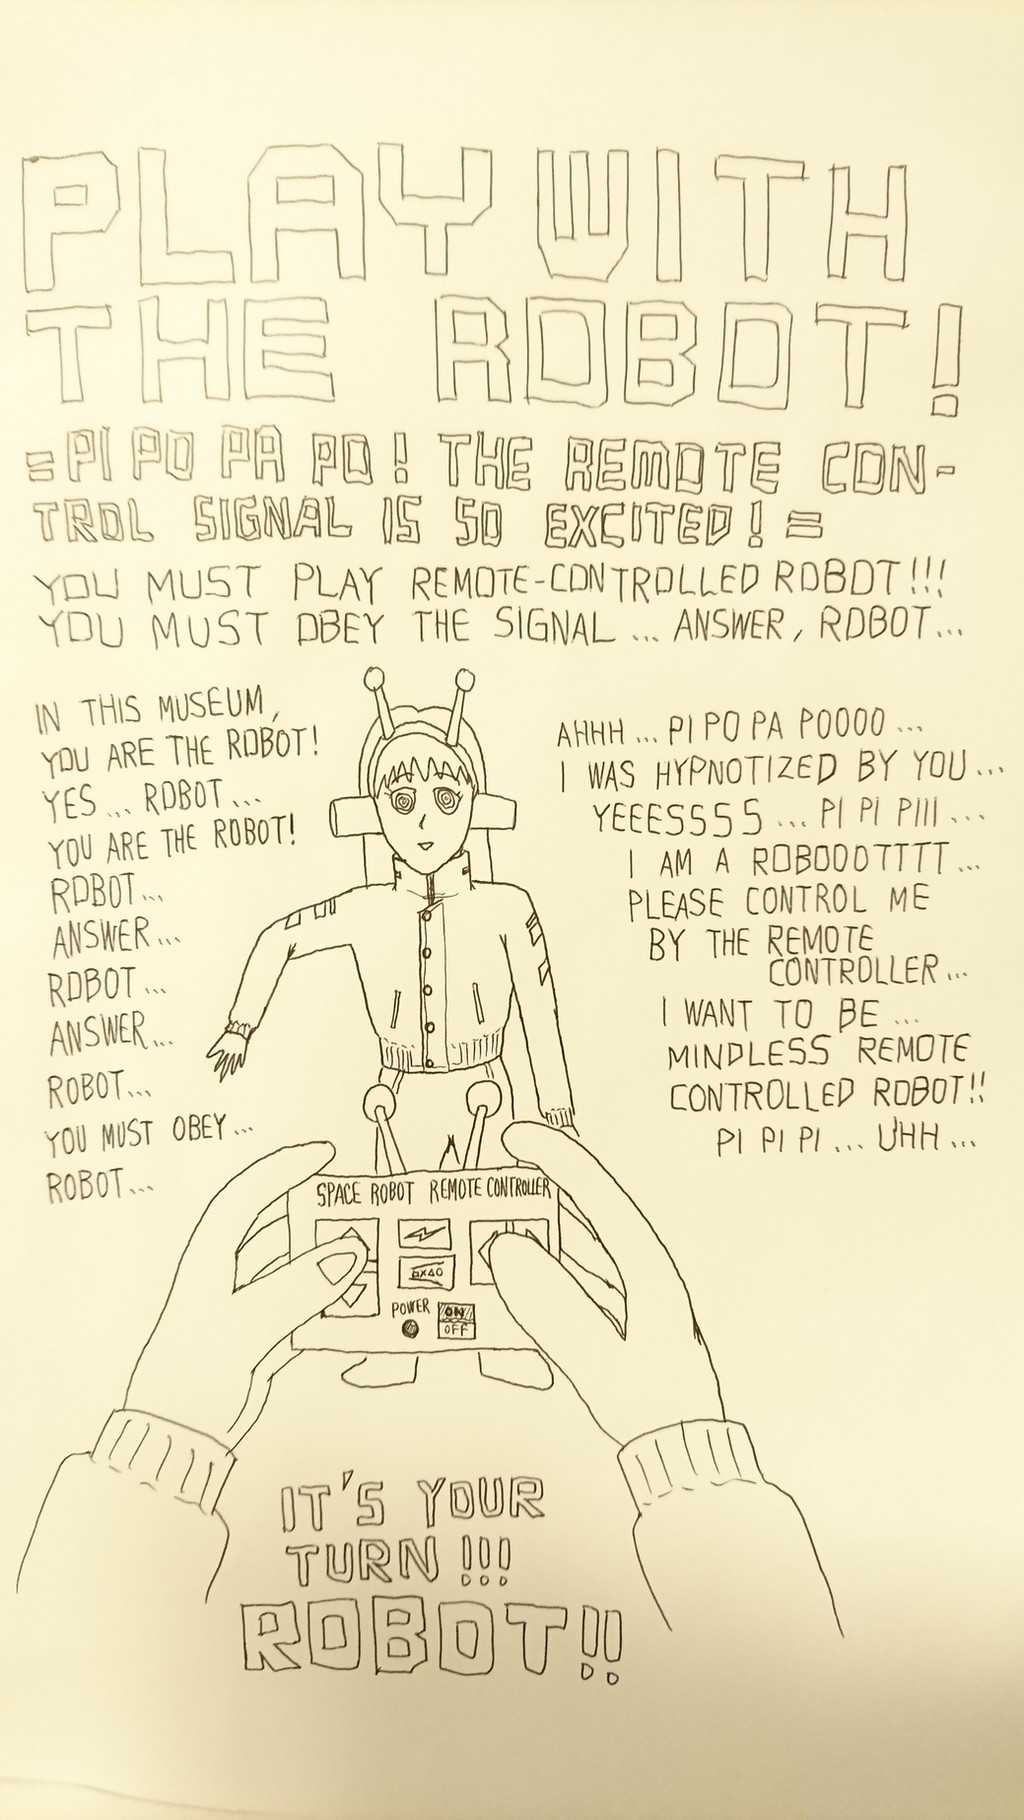 PLAY WITH
THE ROBOT!
=PI PO PA PO! THE REMOTE CON-
TROL SIGNAL IS SO EXCITED!=
YOU MUST PLAY REMOTE-CONTROLLED ROBOT!!!
YOU MUST OBEY THE SIGNAL... ANSWER, ROBOT...
IN THIS MUSEUM,
YOU ARE THE ROBOT!
YES... ROBOT...
YOU ARE THE ROBOT!
ROBOT...
ANSWER...
ROBOT...
ANSWER...
ROBOT...
YOU MUST OBEY...
ROBOT...
AHHH... PI PO PA POOOO...
I WAS HYPNOTIZED BY YOU...
YEEESSSS... PI PI PIII...
I AM A ROBOOOTTTT...
PLEASE CONTROL ME
BY THE REMOTE
CONTROLLER...
I WANT TO BE...
MINDLESS REMOTE
CONTROLLED ROBOT!!
PI PI PI... UHH...
SPACE ROBOT REMOTE CONTROLLER
□×△○
POWER ON
OFF
IT'S YOUR
TURN!!!
ROBOT!!